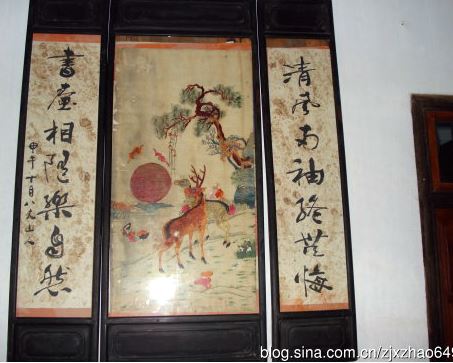 清風兩袖終無悔
書屋相隨樂自然
甲午月八大山人
blog.sina.com.cn/zjxzhao649